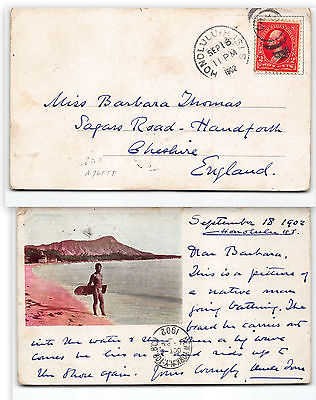 HONOLULU
SEP 18
11 PM
1902
Miss Barbara Thomas
Sagars Road - Handforth
Cheshire
England.
September 18 1902
Honolulu
Dear Barbara,
This is a picture
of a native man
going bathing. The
board he carries out
into the water & when a big wave
comes he lies on and rides up to
the shore again. Yours lovingly Uncle
1902